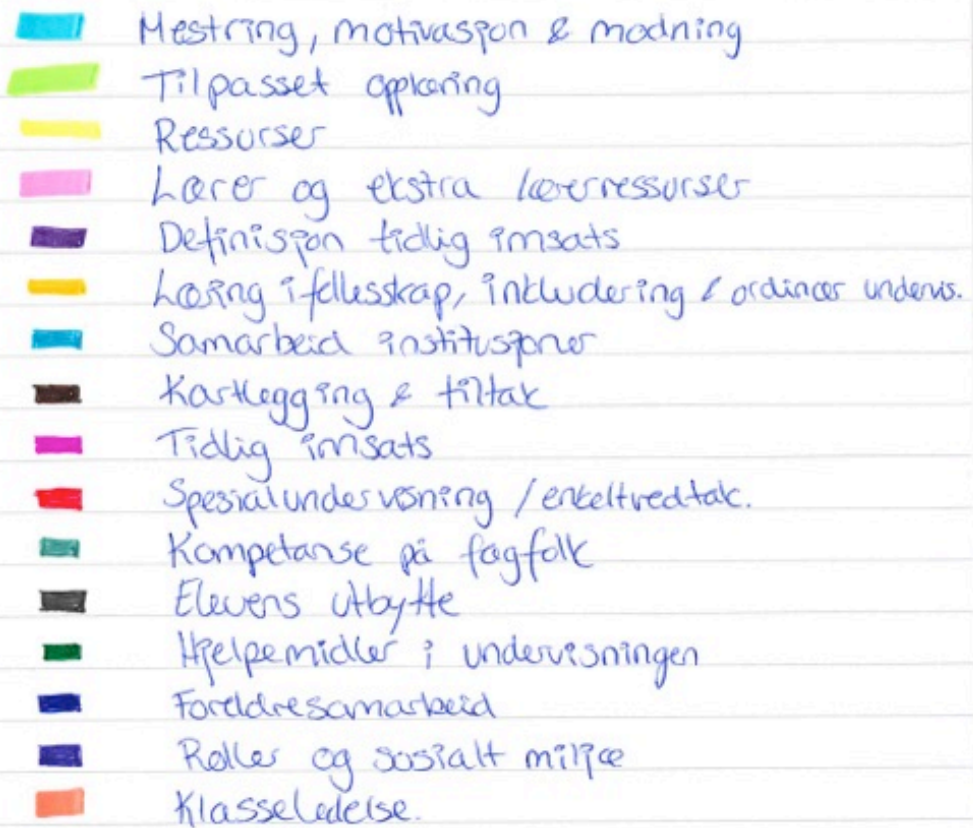 Mestring, motivasjon & modning
Tilpasset opplæring
Ressurser
Lærer og ekstra lærerressurser
Definisjon tidlig innsats
Læring i fellesskap, inkludering & ordinær undervis.
Samarbeid institusjoner
Kartlegging & tiltak
Tidlig innsats
Spesialundervisning / enkeltvedtak.
Kompetanse på fagfolk
Elevens utbytte
Hjelpemidler i undervisningen
Foreldresamarbeid
Roller og sosialt miljø
Klasseledelse.